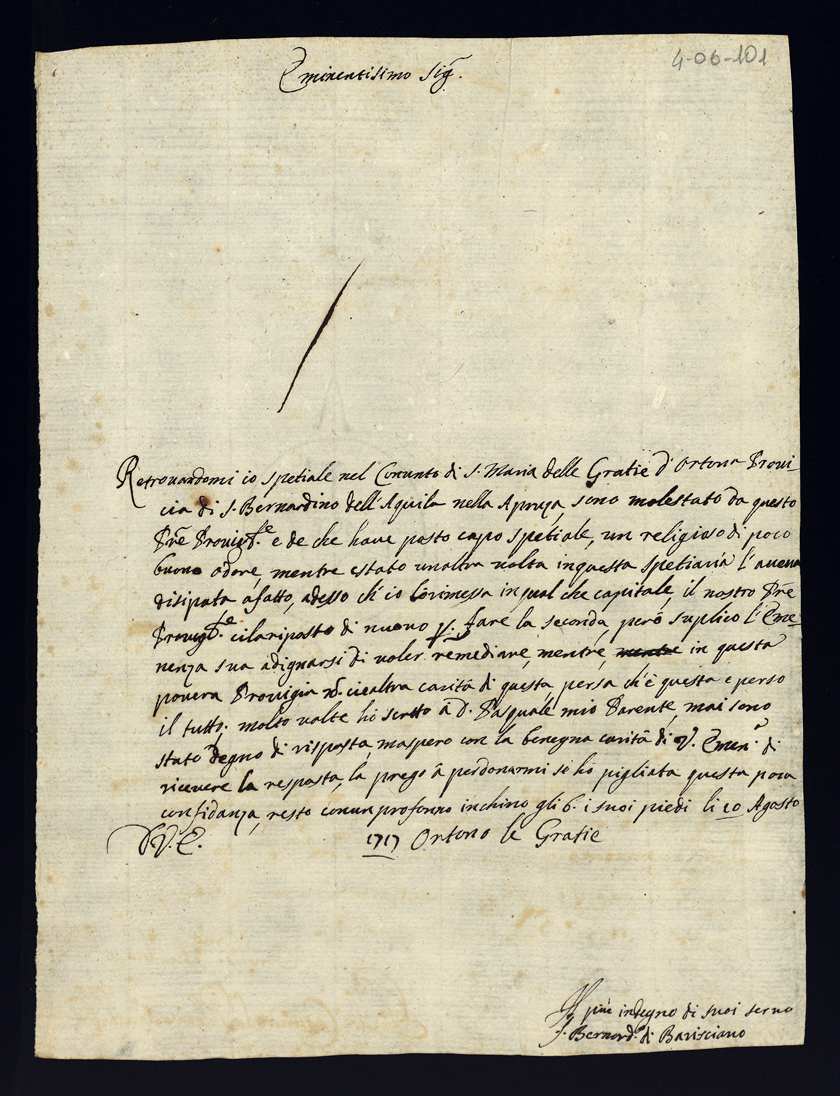 4-06-101
Eminentisimo Sig.
Retrouandomi io spetiale nel Conunto di S. Maria delle Gratie d'Ortona Proui-
cia di S. Bernardino dell'Aquila nella Apruza, sono molestato da questo
Pre Prouigle e de che haue posto capo spetiale, un religioso di poco
buono odore, mentre estato unaltra uolta inquesta spetiaria l'aueua
disipata afatto, adesso ch'io lorimessa in qual che capitale, il nostro Pre
Prouigle cilariposto di nuouo p. fare la seconda però suplico l'Eme-
nenza sua adignarsi di uoler remediare, mentre, in questa
pouera Prouigia ciealtra carità di questa, persa ch'è questa è perso
il tutto. molto uolte hò scritto à D. Pasquale mio Parente, mai sono
stato degno di risposta, maspero con la benegna carità di V. Emin.a di
riceuere la resposta, la prego à perdonarmi se hò pigliata questa poca
confidanza, resto conun profonno inchino gli b. i suoi piedi li 10 Agosto
D V. E. 1717 Ortono le Gratie
Il più indegno di suoi seruo
f. Bernard.o di Barisciano